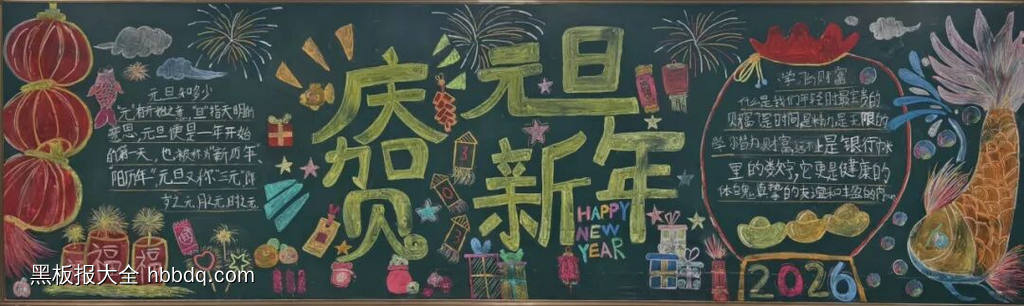 元旦知多少
"元"有开始之意，"旦"指天明的
意思，元旦便是一年开始
的第一天，也被称为"新历年、
阳历年"元旦又称"三元"即
岁之元月之元时之元
庆元旦
贺新年
HAPPY
NEW
YEAR
福
福
学习的财富
什么是我们年轻时最宝贵的
财富?是时间是精力是无限的
学习能力财富远不止是"银行"卡
里的数字,它更是健康的
体魄,真挚的友谊和丰盈的内
2026
黑板报大全 hbbdq.com